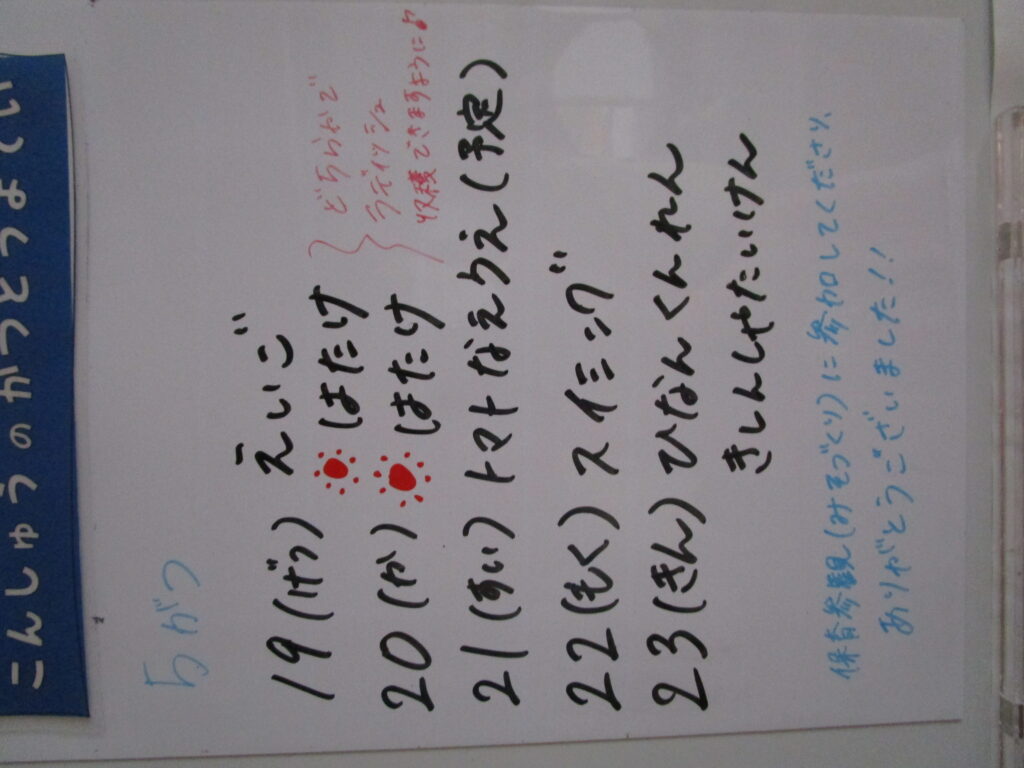 こんしゅうのかつどうよてい
5がつ
19(げつ) えいご
はたけ
20(か) はたけ
どちらかで
ラディッシュ
収穫できますように♪
21(すい) トマトなえうえ(予定)
22(もく) スイミング
23(きん) ひなんくんれん
きしんしゃたいけん
保育参観(みそづくり)に参加してくださり、
ありがとうございました!!